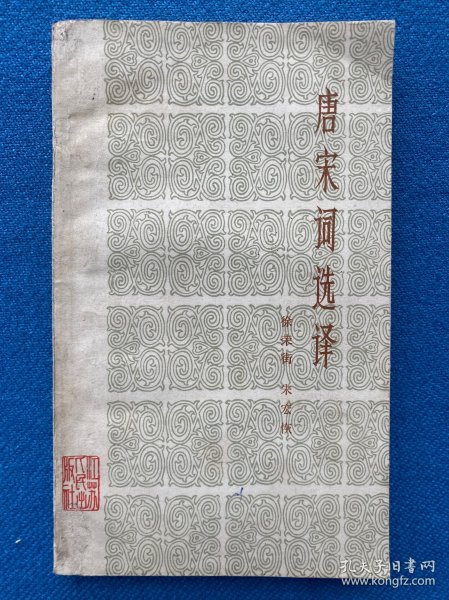 唐宋词选译
徐荣街 朱宏恢
江苏
人民出
版社
孔夫子旧书网
www.kongfz.com